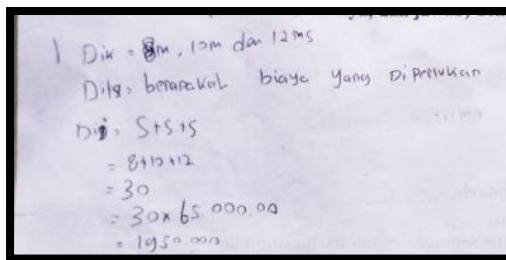 1 Dik = 8m, 10m dan 12ms
Dit = berapakah biaya yang Diperlukan
Dij = S+S+S
= 8+10+12
= 30
= 30x65 000.00
= 1950.000